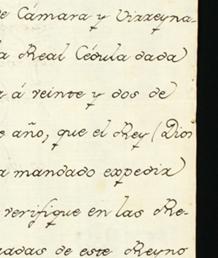 de Cámara y Virreyna-
la Real Cédula dada
a á veinte y dos de
e año, que el Rey (Dios
a mandado expedir
verifique en las Re-
adas de este Reyno